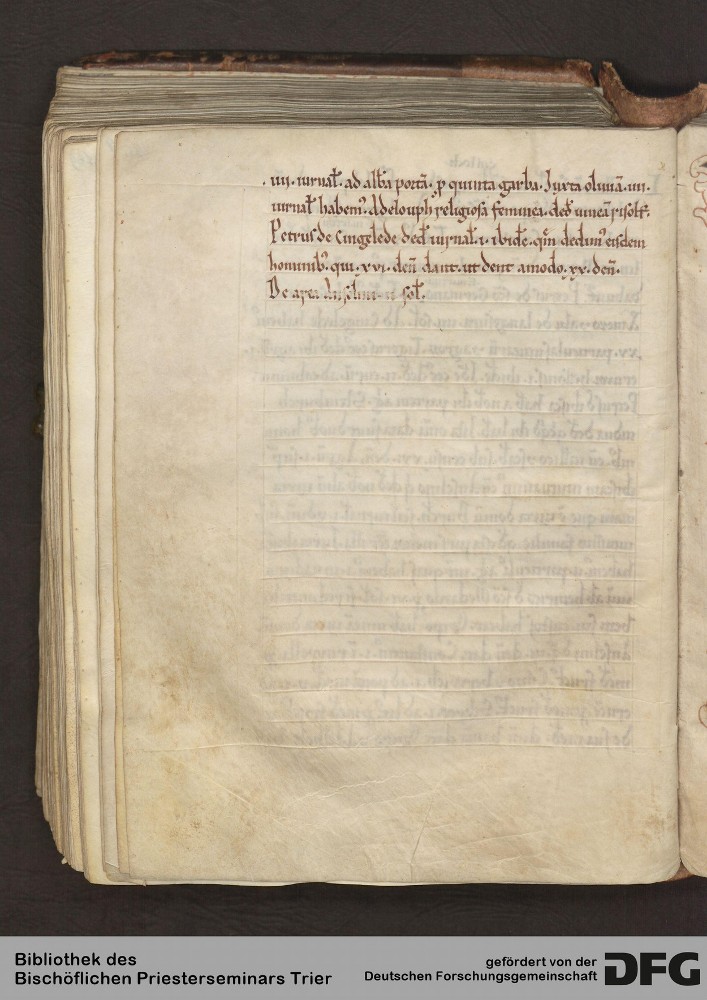 .iiii. iurnal̄. ad alba portā. ꝑ quinta garba. Iuxta oliuiā. iiii.
iurnal̄ habem᷒. Adelouph religiosa femina. ded̄ uineā
Petrus de Cingelede ded̄ iurnal̄. i. ibidē. qm̄ dedim᷒ eisdem
hominib᷒. qui .xvi. den̄ dant. ut dent amodo .xx. den̄.
De area Anselmi. ii. sol̄.
Bibliothek des
Bischöflichen Priesterseminars Trier
gefördert von der
Deutschen Forschungsgemeinschaft
DFG